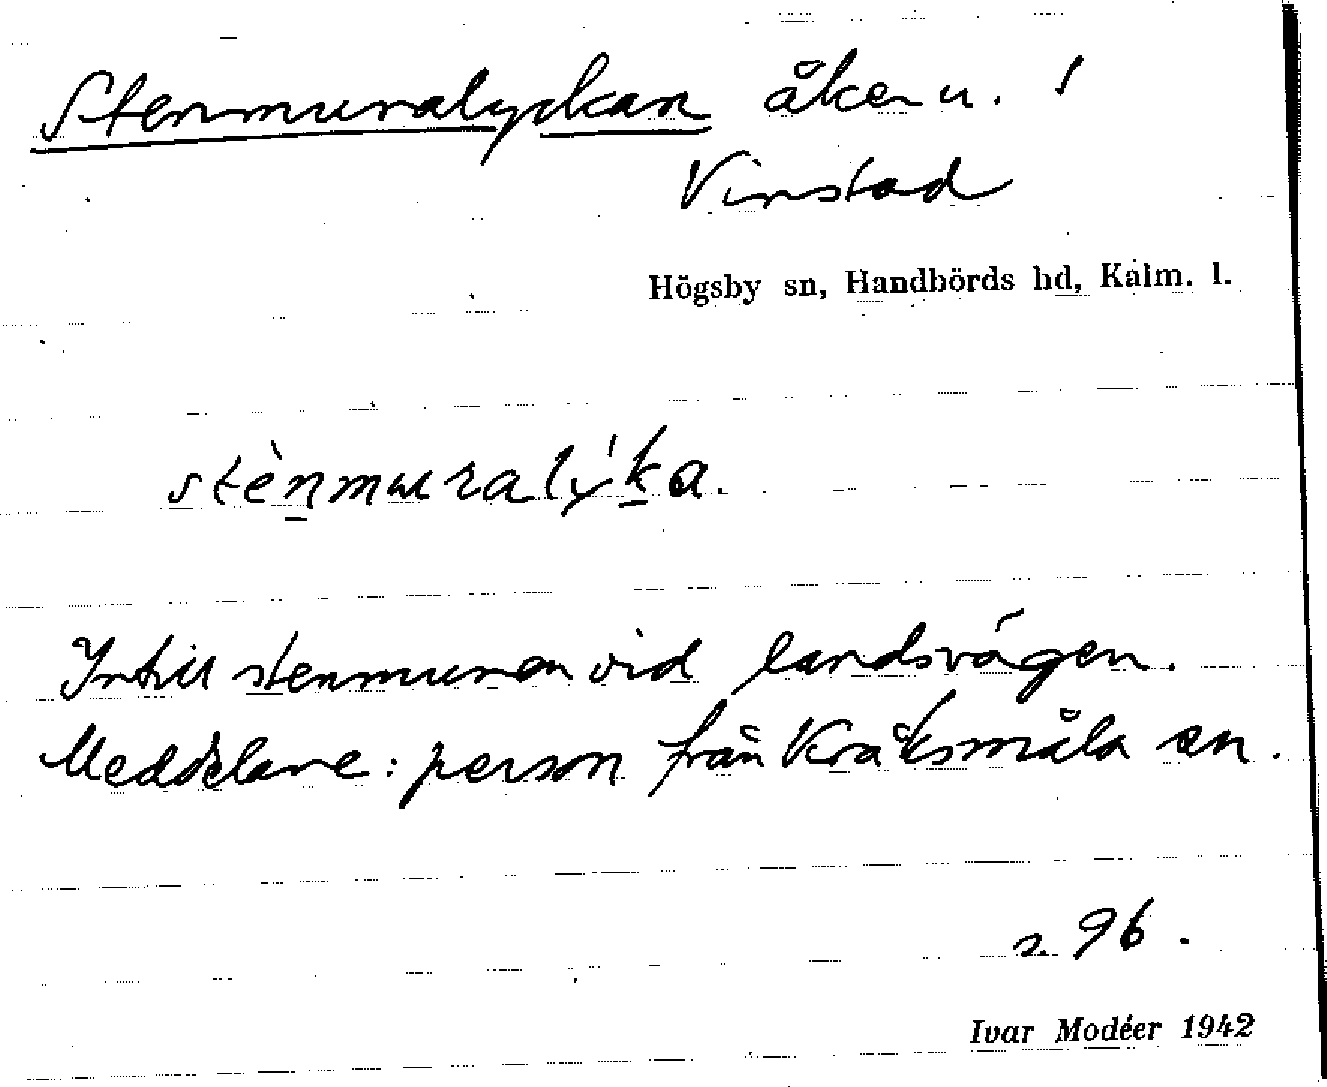 Stenmuralyckan åker u. /
Vinstad
Högsby sn, Handbörds hd, Kalm. l.
stènmuralýka.
Intill stenmuren vid landsvägen.
Meddelare: person från Kråksmåla sn.
s. 96.
Ivar Modéer 1942